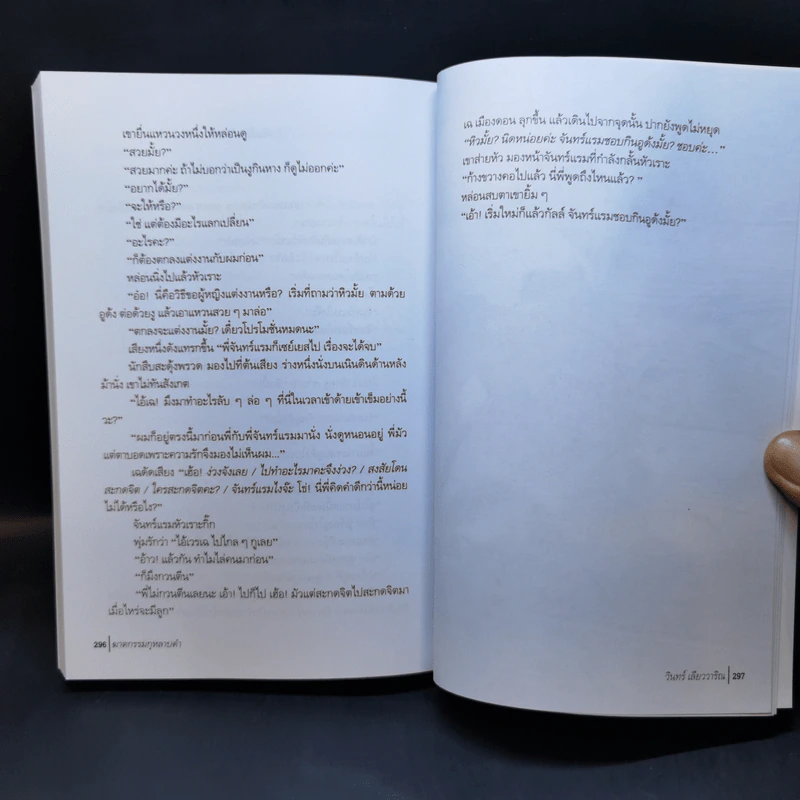 เขายื่นแหวนวงหนึ่งให้หล่อนดู
“สวยมั้ย?”
“สวยมากค่ะ ถ้าไม่บอกว่าเป็นงูกินหาง ก็ดูไม่ออกค่ะ”
“อยากได้มั้ย?”
“จะให้หรือ?”
“ใช่ แต่ต้องมีอะไรแลกเปลี่ยน”
“อะไรคะ?”
“ก็ต้องตกลงแต่งงานกับผมก่อน”
หล่อนนิ่งไปแล้วหัวเราะ
“อ๋อ! นี่คือวิธีขอผู้หญิงแต่งงานหรือ? เริ่มที่ถามว่าหิวมั้ย ตามด้วย
อูด้ง ต่อด้วยงู แล้วเอาแหวนสวย ๆ มาล่อ”
“ตกลงจะแต่งงานมั้ย? เดี๋ยวโปรโมชั่นหมดนะ”
เสียงหนึ่งดังแทรกขึ้น “พี่จันทร์แรมก็เซย์เยสไป เรื่องจะได้จบ”
นักสืบสะดุ้งพรวด มองไปที่ต้นเสียง ร่างหนึ่งนั่งบนเนินดินด้านหลัง
ม้านั่ง เขาไม่ทันสังเกต
“ไอ้เฉ! มึงมาทำอะไรลับ ๆ ล่อ ๆ ที่นี่ในเวลาเข้าด้ายเข้าเข็มอย่างนี้
วะ?”
“ผมก็อยู่ตรงนี้มาก่อนพี่กับพี่จันทร์แรมมานั่ง นั่งดูหนอนอยู่ พี่มัว
แต่ตาบอดเพราะความรักจึงมองไม่เห็นผม...”
เฉดัดเสียง “เฮ้อ! ง่วงจังเลย / ไปทำอะไรมาคะจึงง่วง? / สงสัยโดน
สะกดจิต / ใครสะกดจิตคะ? / จันทร์แรมไงจ๊ะ โธ่! นี่พี่คิดคำดีกว่านี้หน่อย
ไม่ได้หรือไง?”
จันทร์แรมหัวเราะกิ๊ก
พุ่มรักว่า “ไอ้เวรเฉ ไปไกล ๆ กูเลย”
“อ้าว! แล้วกัน ทำไมไล่คนมาก่อน”
“ก็มึงกวนตีน”
“พี่ไม่กวนตีนเลยนะ เอ้า! ไปก็ไป เฮ้อ! มัวแต่สะกดจิตไปสะกดจิตมา
เมื่อไหร่จะมีลูก”
296 ฆาตกรรมกุหลาบดำ
เฉ เมืองตอน ลุกขึ้น แล้วเดินไปจากจุดนั้น ปากยังพูดไม่หยุด
“หิวมั้ย? นิดหน่อยค่ะ จันทร์แรมชอบกินอูด้งมั้ย? ชอบค่ะ...”
เขาส่ายหัว มองหน้าจันทร์แรมที่กำลังกลั้นหัวเราะ
“ก้างขวางคอไปแล้ว นี่พี่พูดถึงไหนแล้ว? ”
หล่อนสบตาเขายิ้ม ๆ
“เอ้า! เริ่มใหม่ก็แล้วกัลล์ จันทร์แรมชอบกินอูด้งมั้ย?”
วินทร์ เลียววาริณ 297